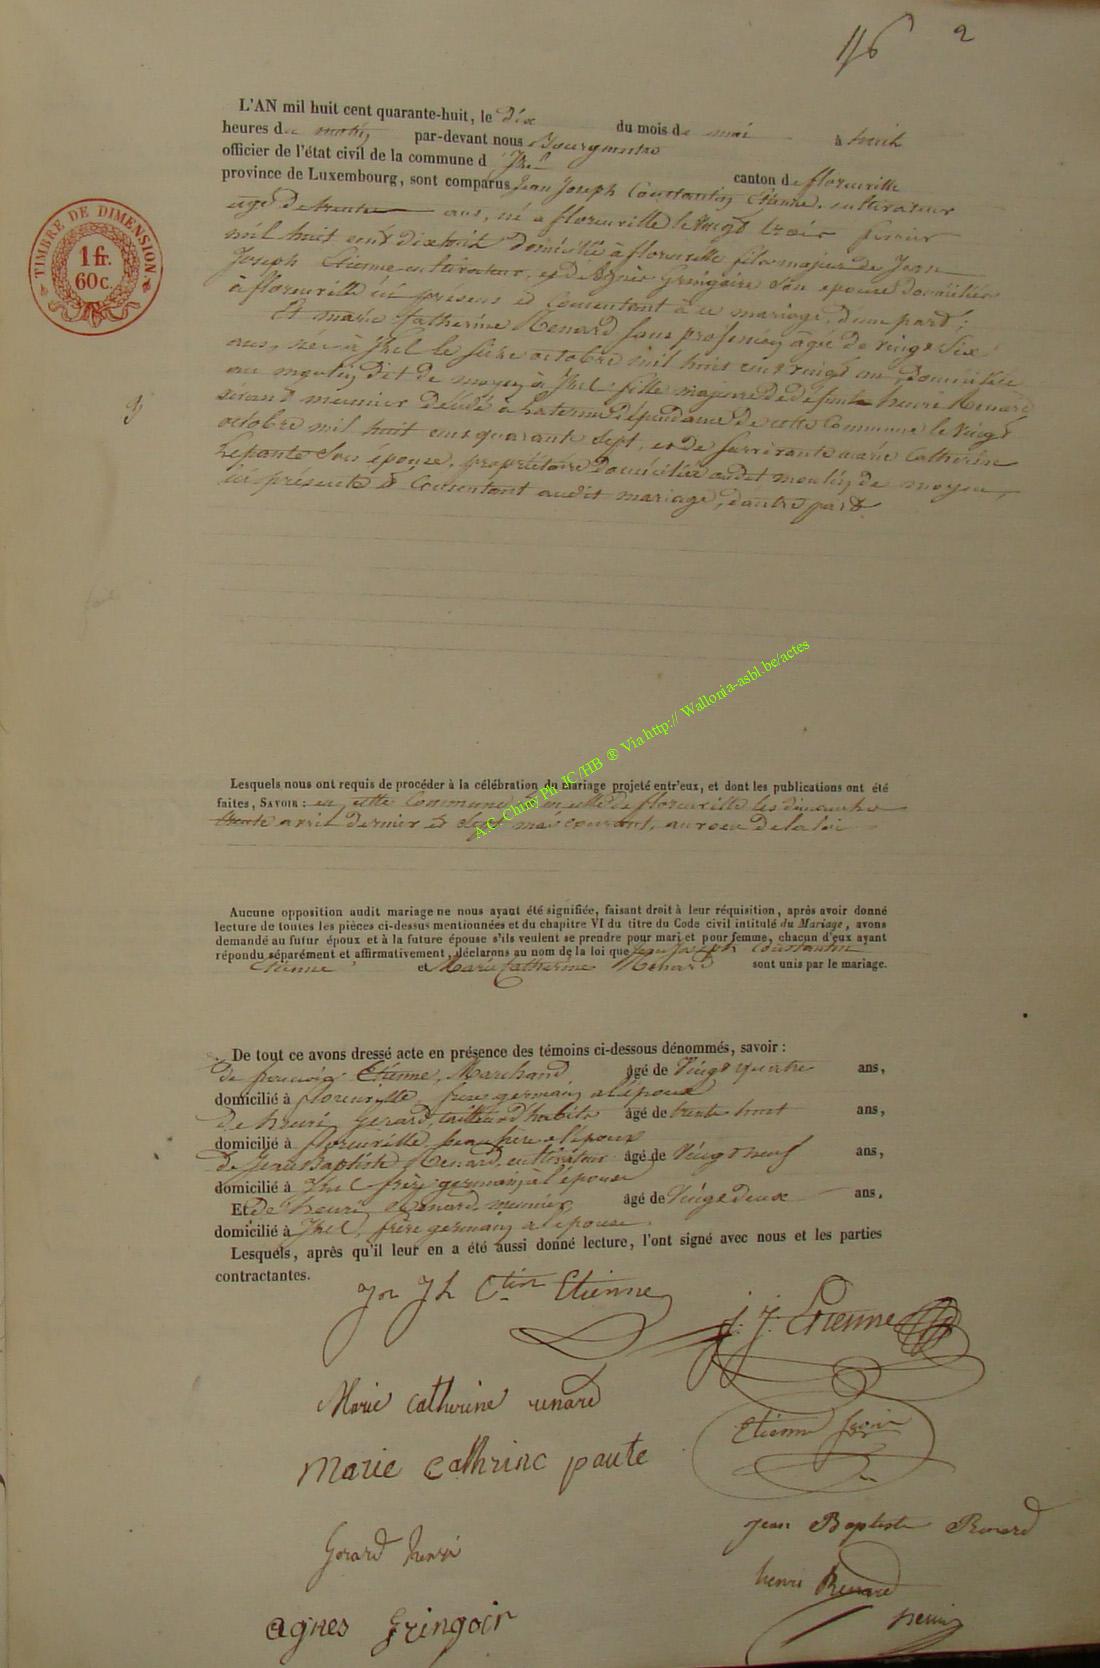 116 2
TIMBRE DE DIMENSION
1 fr.
60 c.
L'AN mil huit cent quarante-huit, le dix du mois de mai à huit
heures du matin par-devant nous Bourgmestre
officier de l'état civil de la commune d' canton de florenville
province de Luxembourg, sont comparus Jean Joseph Constantin Etienne, cultivateur
agé de trente ans, né à florenville le vingt trois fevrier
mil huit cent dix huit domicilié à florenville fils majeur de Jean
Joseph Etienne cultivateur, et d'Agnès Gringoire son epouse domiciliés
à florenville ici présens et consentant à ce mariage, d'une part;
Et marie Catherine Renard sans profession agée de vingt six
ans, née à le seize octobre mil huit cent vingt un, domiciliée
au moulin dit de moyen à fille majeure de defunt henri Renard
vivant meunier décédé à dépendance de cette Commune le vingt
octobre mil huit cent quarante sept, et de survivante marie Catherine
son épouse, propriétaire domiciliée audit moulin de moyen,
ici présente et Consentant audit mariage, d'autre part
Lesquels nous ont requis de procéder à la célébration du mariage projeté entr'eux, et dont les publications ont été
faites, SAVOIR : en cette Commune, et en celle de florenville les dimanches
trente avril dernier et sept mai courant, au voeu de la loi
A.C. Chiny Ph. JC/HB ® Via http:// Wallonia-asbl.be/actes
Aucune opposition audit mariage ne nous ayant été signifiée, faisant droit à leur réquisition, après avoir donné
lecture de toutes les pièces ci-dessus mentionnées et du chapitre VI du titre du Code civil intitulé du Mariage, avons
demandé au futur époux et à la future épouse s'ils veulent se prendre pour mari et pour femme, chacun d'eux ayant
répondu séparément et affirmativement, déclarons au nom de la loi que Jean Joseph Constantin
Etienne et Marie Catherine Renard sont unis par le mariage.
De tout ce avons dressé acte en présence des témoins ci-dessous dénommés, savoir :
de Etienne, Marchand âgé de Vingt quatre ans,
domicilié à florenville, frère germain a l'époux
de henri gerard, tailleur d'habits âgé de trente huit ans,
domicilié à florenville beau frère a l'époux
de Jean Baptiste Renard, cultivateur âgé de Vingt neuf ans,
domicilié à frère germain à l'épouse
Et de henri Renard, meunier âgé de Vingt deux ans,
domicilié à frère germain a l'épouse.
Lesquels, après qu'il leur en a été aussi donné lecture, l'ont signé avec nous et les parties
contractantes.
Jn Jh Ctin Etienne
j. j. Etienne
Marie catherine renard
Etienne
Marie cathrine paute
Jean Baptiste Renard
Gerard henri
henri Renard
agnes Gringoir